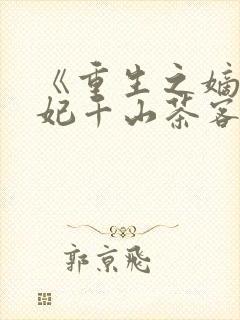 《重生之嫡
妃千山茶客
郭京飛